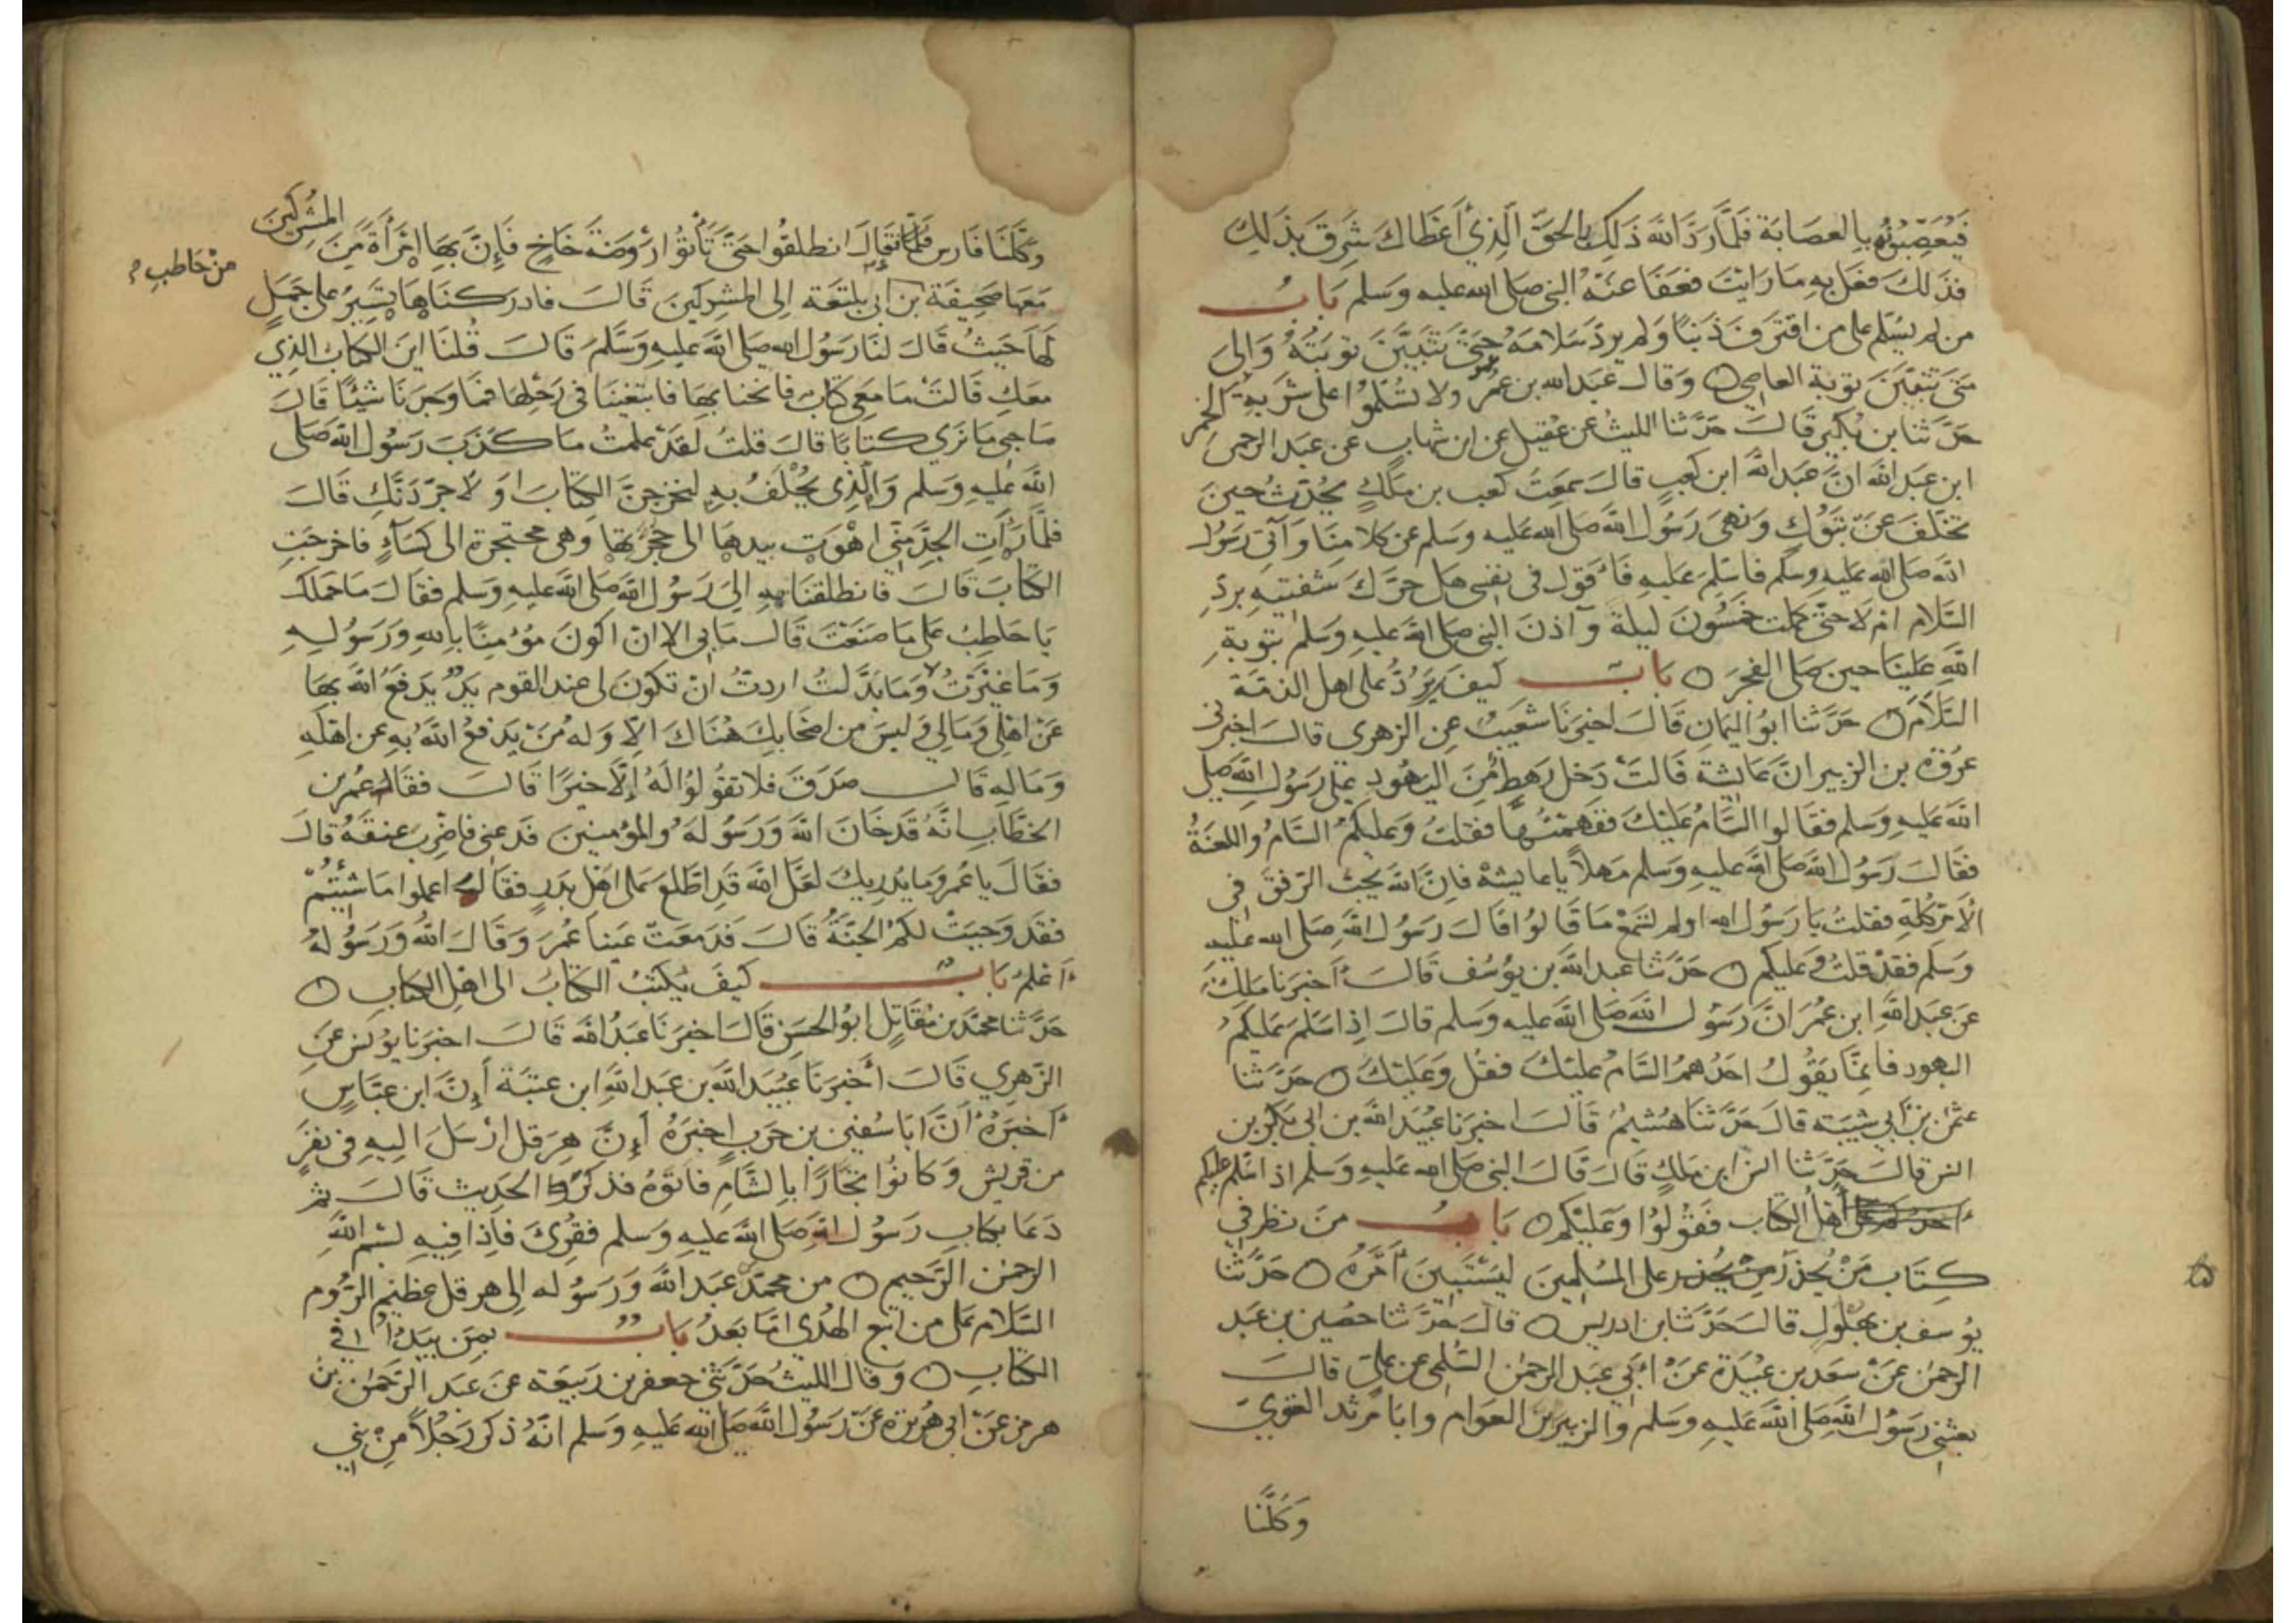 فَيُعَصِّبُونَهُ بِالعصَابَة فَلَمَّا رَدَّ اللهُ ذَلِكَ بِالحَقِّ الَّذِي أَعْطَاكَ شَرِقَ بِذَلِكَ
فذَلكَ فعَل بِهِ مَا رَايْتَ فعَفَا عَنْهُ النبي صَلى الله عليه وسَلم بَابُ
من لم يُسَلم على من اقتَرفَ ذَنبًا وَلم يردّ سَلامَهُ حَتّىَ تَتَبَيَّنَ توبَتُهُ وَاِلى
مَتَى تَتَبَيَّنَ توبة العاصِي وَقال عَبدَالله بن عُمَر ولا تُسَلِّمُوا على شَرَبَةِ الخَمْرِ
حَدَّثنَا بن بُكَيرٍ قَالَ حَدَّثنا الليثُ عَن عُقيلٍ عَن ابن شِهابٍ عَن عَبد الرحمن
ابن عَبد الله انَّ عَبدَ اللهِ ابن كعبٍ قال سَمِعتُ كعب بن مَلكٍ يُحَدِّثُ حِينَ
تَخَلَّفَ عَنْ تبَوُكٍ وَنَهى رَسُول الله صَلى الله عَليه وَسَلم عَن كلامِنَا وَآتي رَسُولَ
الله صَلى الله عَليهِ وسَلم فاُسَلِّمُ عَليهِ فَاَقول في نفسي هَل حَرَّكَ شفتيهِ بِردِّ
السَّلام ام لا حَتّى كمُلت خمسُون ليلة وَآذنَ النبي صلى الله عَليهِ وَسَلم بتوبةِ
اللهِ عَلَينَا حينَ صَلى الفجَر بَابُ كيفَ يُرَدُّ على اهل الذمّة
السَّلام حَدَّثنا ابو اليَمَانِ قَالَ اخبَرَنا شعَيبٌ عن الزهري قالَ اخبرني
عُروَة بن الزبيرِ انَّ عَايشة قَالتَ دَخل رَهطٌ مِنَ اليهُودِ على رَسُول الله صلى
الله عَليهِ وسَلم فقالوا السَّامُ عَليْكَ ففَهِمْتُهَا فقلتُ وَعليكمُ السَّامُ واللعنَةُ
فقَالَ رَسُول الله صَلى الله عَليهِ وَسلم مَهلاً يا عايشةُ فانَّ الله يُحبُّ الرّفقَ في
الاَمر كلِّهِ فقلتُ يَا رَسُول الله اولم تسمَعْ مَا قَالوُا قَالَ رَسُول الله صَلى الله عليهِ
وَسَلم فقدْ قلتُ وَعَليكم حَدَّثنا عبدالله بن يوُسُف قَالَ أَخبَرَنا مَالِكٌ
عَن عَبد اللهِ ابن عُمَر انَّ رَسُولَ الله صَلى الله عليه وسلم قَالَ اِذا سَلمَ عَليكمُ
اليهود فانمَّا يَقُولُ احَدُهمُ السَّامُ عليْكَ فقل وَعَليْكَ حَدَّثنا
عثمٰن بن أبي شيبَة قالَ حَدَّثنَا هُشيمٌ قَالَ اخبَرَنا عُبَيدُ الله بن ابي بَكرِ بن
انس قالَ حَدَّثنا انس ابن ملكٍ قَالَ قَالَ النبي صَلى الله عَليهِ وَسَلم اذا سَلم عليكم
أَهلُ الكتاب فَقُولوُا وَعَليْكم بَابُ منَ نظرَ في
كِتَابِ مَنْ يُحذَرُ على المسْلِمينَ ليَسْتَبِينَ أَمْرُهُ حَدَّثنَا
يوُسف بن بهلُولٍ قالَ حَدَّثنا بن ادريس قالَ حَدَّثنا حُصَين بن عَبد
الرحمن عَنْ سَعد بن عُبَيْدَة عَنْ ابَي عَبد الرحمٰن السُّلمي عن عليّ قالَ
بعثني رَسُول الله صَلى الله عَليهِ وسَلم والزبير بن العَوام وابَا مَرثد الغنويّ
وَكُلُّنَا
وَكُلُّنَا فَارس فقَالَ انطلقوُا حَتّىَ تَأتوُا رَوْضَةَ خَاخٍ فَاِنَّ بِهَا امْرَأَةً مِنَ المشرِكِينَ
مَعَهَا صَحِيفَة بن ابي بلتعَة اِلى المشركينَ قَالَ فادرَكنَاهَا تَسِيْرُ على جَمَلٍ
من حَاطبِ
لَهَا حَيثُ قَالَ لنَا رَسُول الله صَلى الله عليهِ وَسَلَّمَ قَالَ قُلنَا اينَ الكتابُ الذِي
معَكِ قَالتْ مَا مَعِي كتابٌ فانخنَا بِهَا فابتغينَا في رَحْلِهَا فمَا وَجَدنَا شيئًا قَالَ
صَاحِبي مَا نَرَي كتابًا قالَ قلتُ لَقَدْ عَلِمتُ مَا كَذَبَ رَسُول الله صَلى
اللهُ عَليهِ وسَلم وَالَّذِى يُحْلَفُ بهِ لتخرجِنَّ الكِتابَ اوَ لاُجرّدَنَّكِ قَالَ
فلمَّا رَاَتِ الجِدَّ مِنِّي اهْوَت بيدهَا الى حُجزتِهَا وَهي محتجزة الى كسَاءٍ فاخرجَت
الكتَابَ قَالَ فانطلقنَا بهِ اِلىَ رَسُول الله صَلى اللهَ عليهِ وَسلم فقَالَ مَا حَمَلكَ
يَا حَاطِبُ عَلى مَا صَنَعْتَ قَالَ مَا بي الا انْ اكونَ مُؤمِنًا بِاللهِ وَرَسُولهِ
وَمَا غيَّرْتُ وَمَا بَدَّلتُ اردتُ انْ تكوُنَ لى عند القوم يَدٌ يَدفعُ الله بِهَا
عَنْ اهْلى وَمَالِي وَليسَ من اصْحَابِكَ هُنَاكَ الاّ وَله مَنْ يَدفعُ الله بِهِ عَن اهْلهِ
وَمَالهِ قَالَ صَدَقَ فَلا تقوُلوُا لَهُ إِلاَّ خيرًا قَالَ فقَالَ عُمَر بن
الخطاب انَّهُ قَد خَانَ الله وَرَسُولهُ وَالمُؤمِنينَ فدَعني فاضْرِبَ عنقَهُ قالَ
فقَالَ يا عُمَر وَمَا يُدريكَ لعَلَّ الله قَدِ اطَّلَعَ عَلى اهْل بَدرٍ فقَالَ اعملوا مَا شِئتُمْ
فقَد وَجبَتْ لكمُ الجَنّةُ قَالَ فدَمعَتْ عَينَا عُمَرَ وَقَالَ اللهُ وَرَسُولهُ
أَعْلمُ بَابُ كَيفَ يُكتَبُ الكتابُ الى اهْلِ الكتابِ
حَدَّثنا محمَّد بن مُقَاتِلٍ ابوُ الحسَنِ قَالَ اخبَرَنَا عَبدُ اللهَ قَالَ اخبَرَنَا يوُنس عَنِ
الزّهري قَالَ أَخبَرَنَا عُبَيدَ الله بن عَبد اللهِ ابن عتبَة أَنَّ ابن عبَّاسٍ
أَخبَرَهُ أَنَّ ابَا سُفيٰن بن حَربٍ اخبَرَهُ أَنَّ هِرَقل ارْسَلَ اليهِ في نفَرٍ
من قريشٍ وَكَانوُا تجَّارًا بالشَّامِ فاتوَهُ فذكَرَ الحَدِيث قَالَ ثم
دَعَا بكتابِ رَسُول الله صَلى الله عليهِ وسلم فقُرِئَ فَاِذا فيهِ بسْمِ اللهِ
الرحمٰن الرَّحيمِ من محمّدٍ عَبد الله وَرَسُوله اِلى هرقل عَظيم الرّوم
السَّلام عَلى من اتبع الهُدَي امّا بَعدُ بَابُ بمَنْ يبدَاُ في
الكتابِ وَقال الليثُ حَدَّثني جعفر بن رَبيعَة عَن عَبد الرَّحمٰن بن
هرمز عَنْ ابي هُرَيرَة عَنْ رَسُول الله صَلى الله عَليهِ وَسلم انّهُ ذكرَ رَجُلاً مِنْ بَني